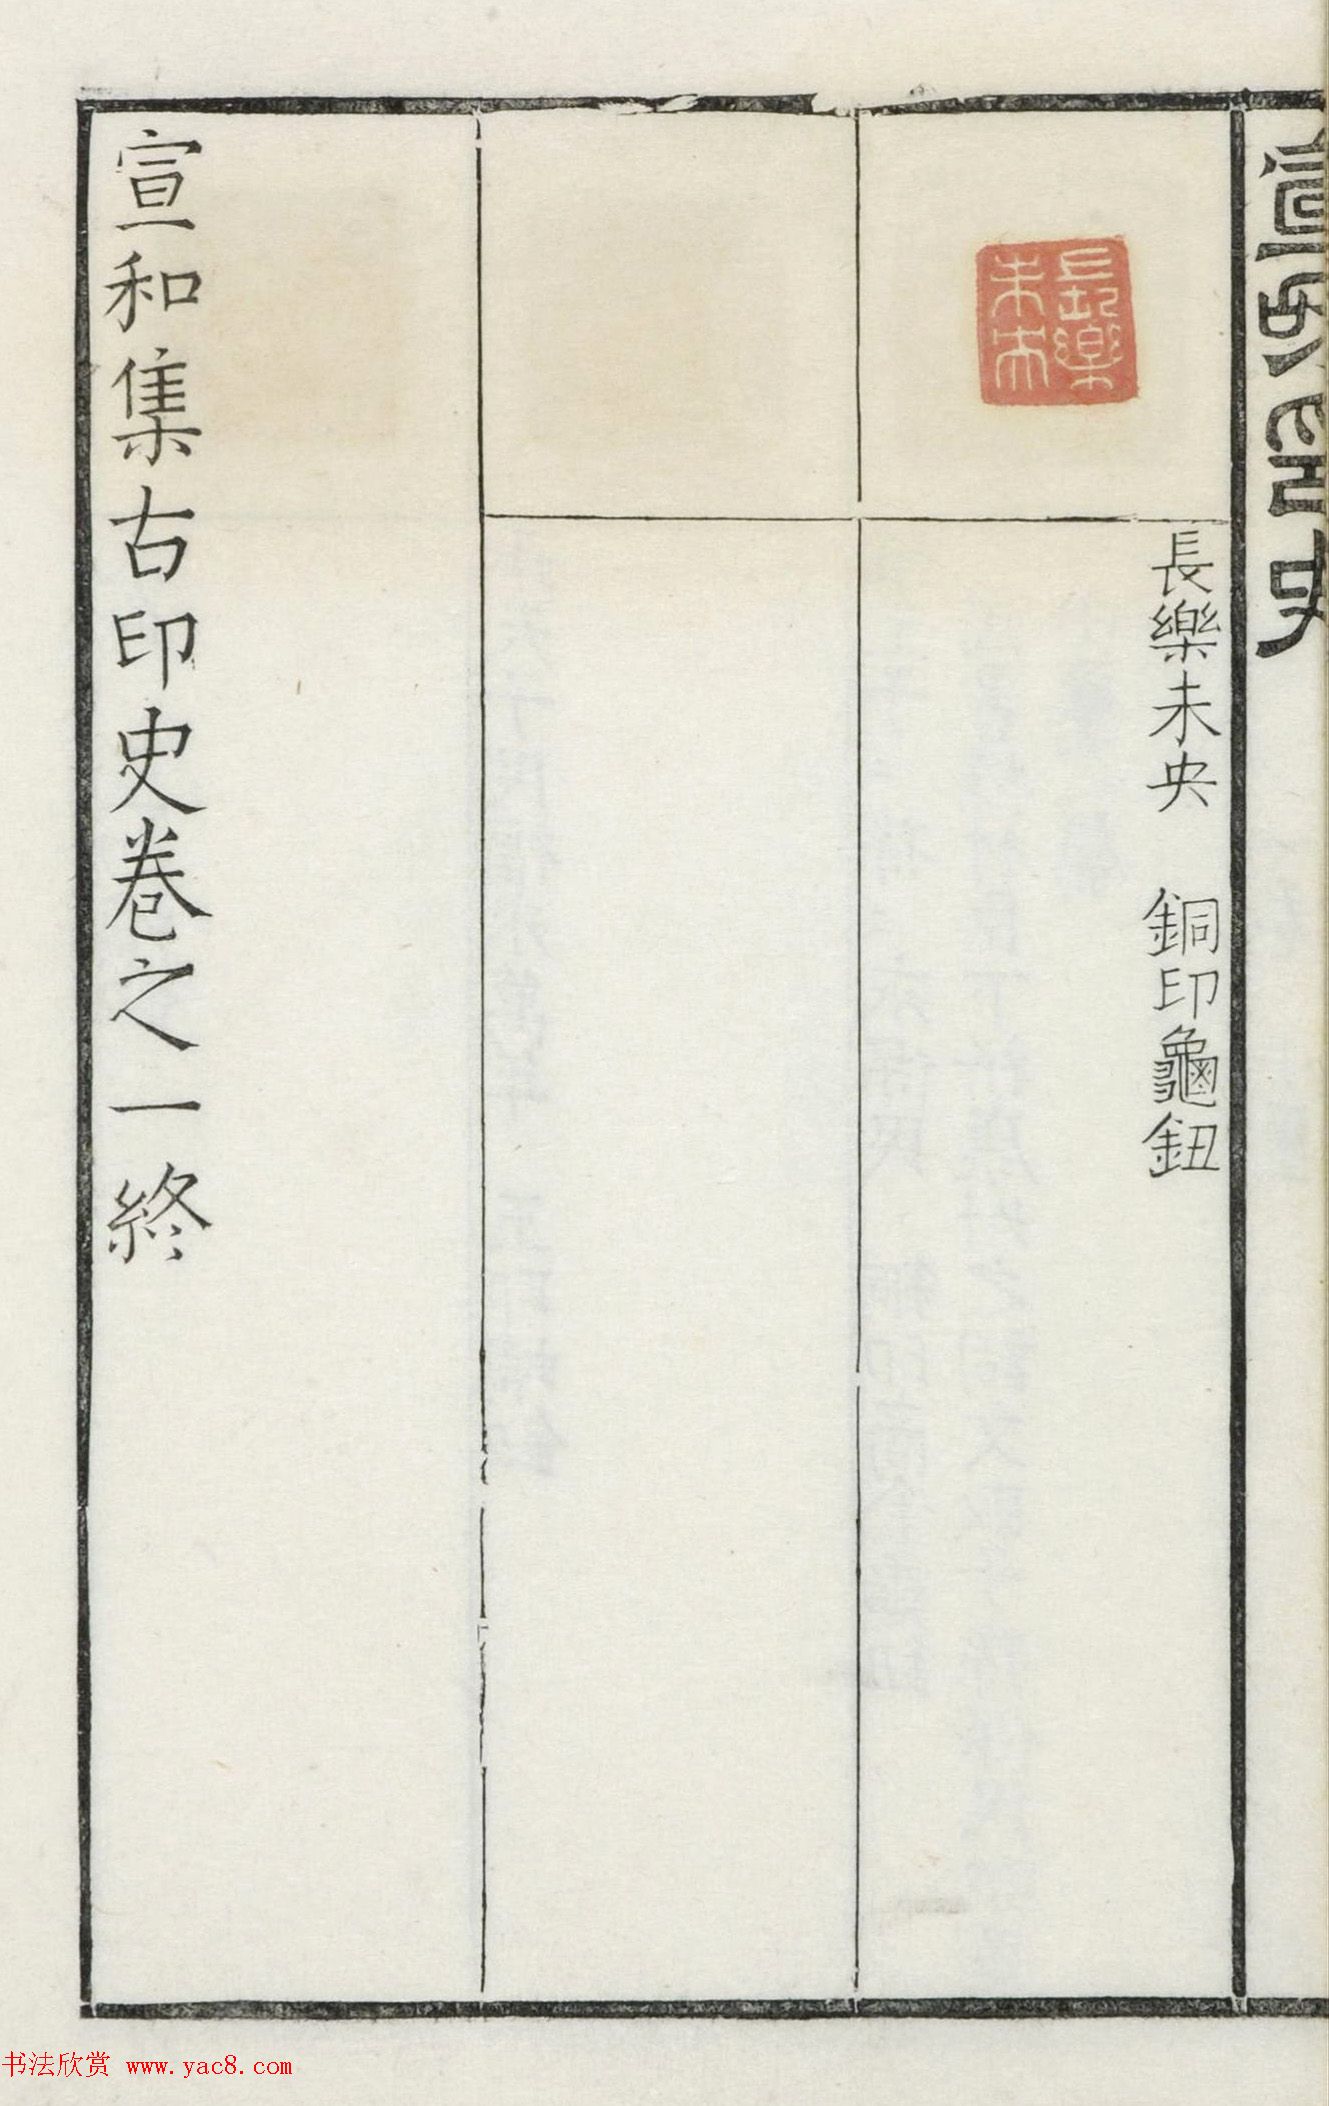 宣和印史
長樂未央
長樂未央　銅印龜鈕
宣和集古印史卷之一終
书法欣赏 www.yac8.com